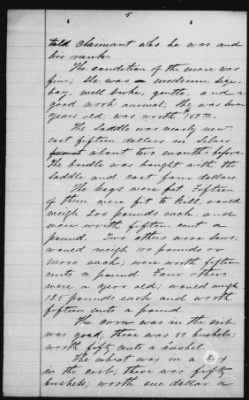 5
told claimant who he was and
his rank.
The condition of the mare was
fine; She was a medium size
bay, well broke, gentle, and a
good work animal. She was seven
years old was worth $150.00.
The Saddle was nearly new
cost fifteen dollars in Silver
about two months before.
The bridle was bought with the
Saddle and cost four dollars.
The hogs were fat. Fifteen
of them were fit to kill, would
weigh 200 pounds each, and
were worth fifteen cents a
pound. Two others were sows,
would weigh 150 pounds or
more each; were worth fifteen
cents a pound. Four others
were a year old; would weigh
125 pounds each and worth
fifteen cents a pound.
The corn was in the crib
was good, there was bushels;
worth fifty cents a bushel.
The wheat was in a
in the crib; there was fifty
bushels; worth one dollar a